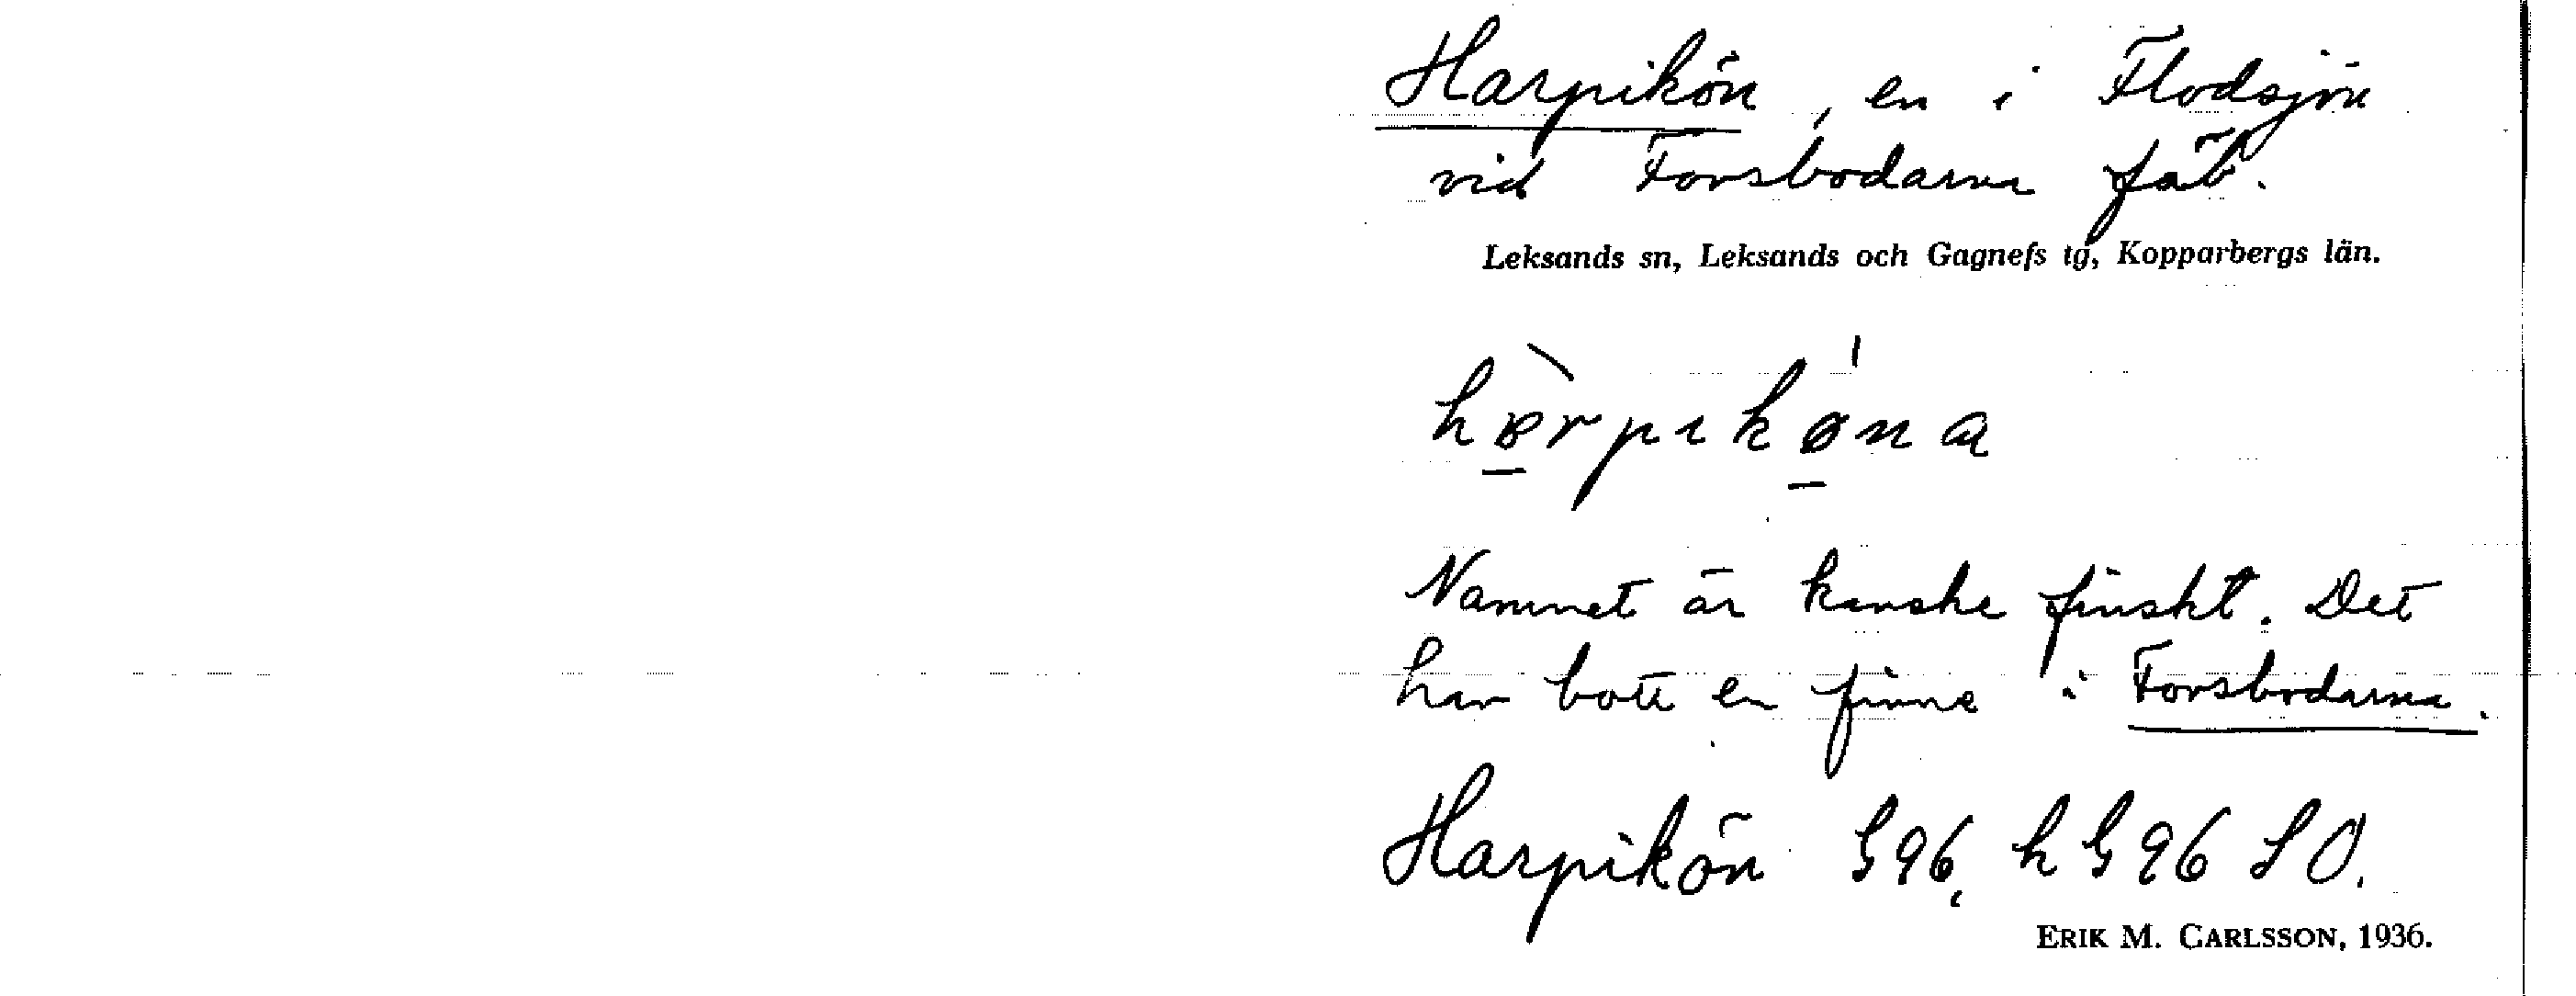 Harpikön, en i Flodsjön
vid Forsbodarna fäb.
Leksands sn, Leksands och Gagnefs tg, Kopparbergs län.
Namnet är kanske finskt. Det
har bott en finne i Forsbodarna.
Harpikön G96, h G 96 SO.
ERIK M. CARLSSON, 1936.